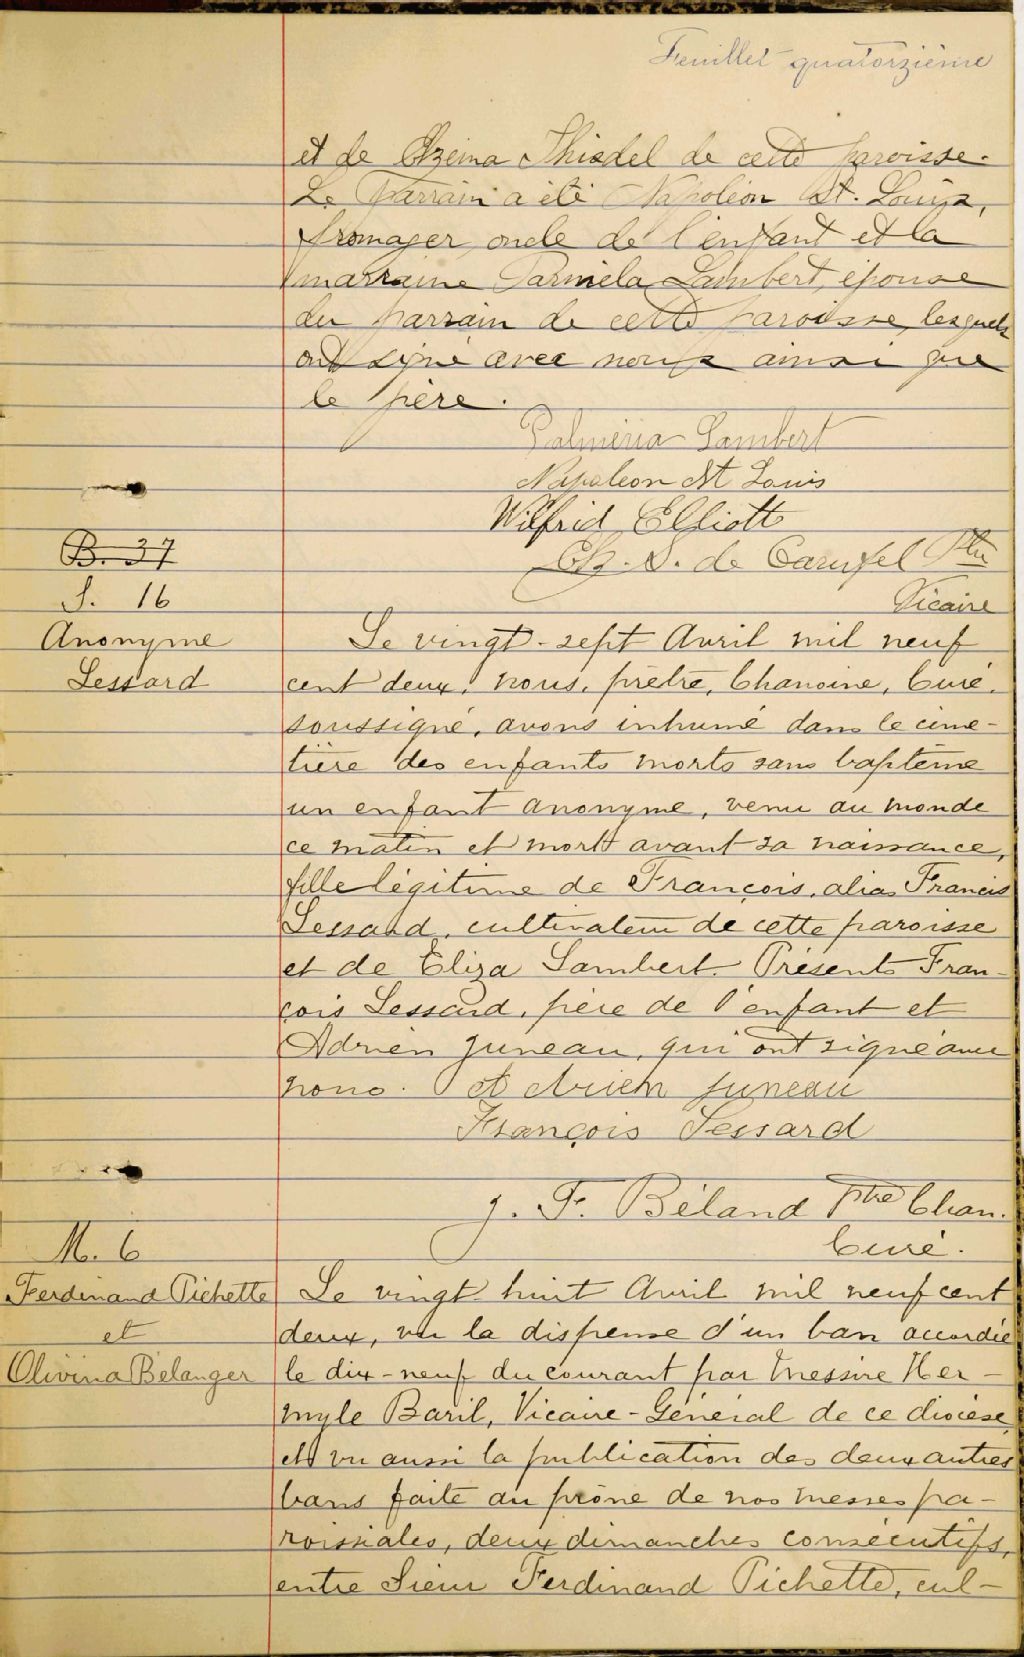 Feuillet quatorzième
et de Ozeina Thisdel de cette paroisse.
Le Parrain a été Napoléon St. Louis,
fromager, oncle de l'enfant et la
marraine Parmela Lambert, épouse
du parrain de cette paroisse, lesquels
ont signé avec nous ainsi que
le père.
Palméria Lambert
Napoleon St Louis
Wilfrid Elliott
B. 37
Ch. S. de Carufel Ptre
S. 16
Vicaire
Anonyme
Lessard
Le vingt-sept Avril mil neuf
cent deux, nous, prêtre, Chanoine, Curé,
soussigné, avons inhumé dans le cime-
tière des enfants morts sans baptême
un enfant anonyme, venu au monde
ce matin et mort avant sa naissance,
fille légitime de François, alias Francis
Lessard, cultivateur de cette paroisse
et de Eliza Lambert. Présents Fran-
çois Lessard, père de l'enfant et
Adrien Juneau, qui ont signé avec
nous. Adrien Juneau
François Lessard
J. F. Béland Ptre Chan.
Curé.
M. 6
Ferdinand Pichette
et
Olivina Bélanger
Le vingt huit Avril mil neuf cent
deux, vu la dispense d'un ban accordée
le dix-neuf du courant par Messire Her-
myle Baril, Vicaire-Général de ce diocèse,
et vu aussi la publication des deux autres
bans faite au prône de nos messes pa-
roissiales, deux dimanches consécutifs,
entre Sieur Ferdinand Pichette, cul-